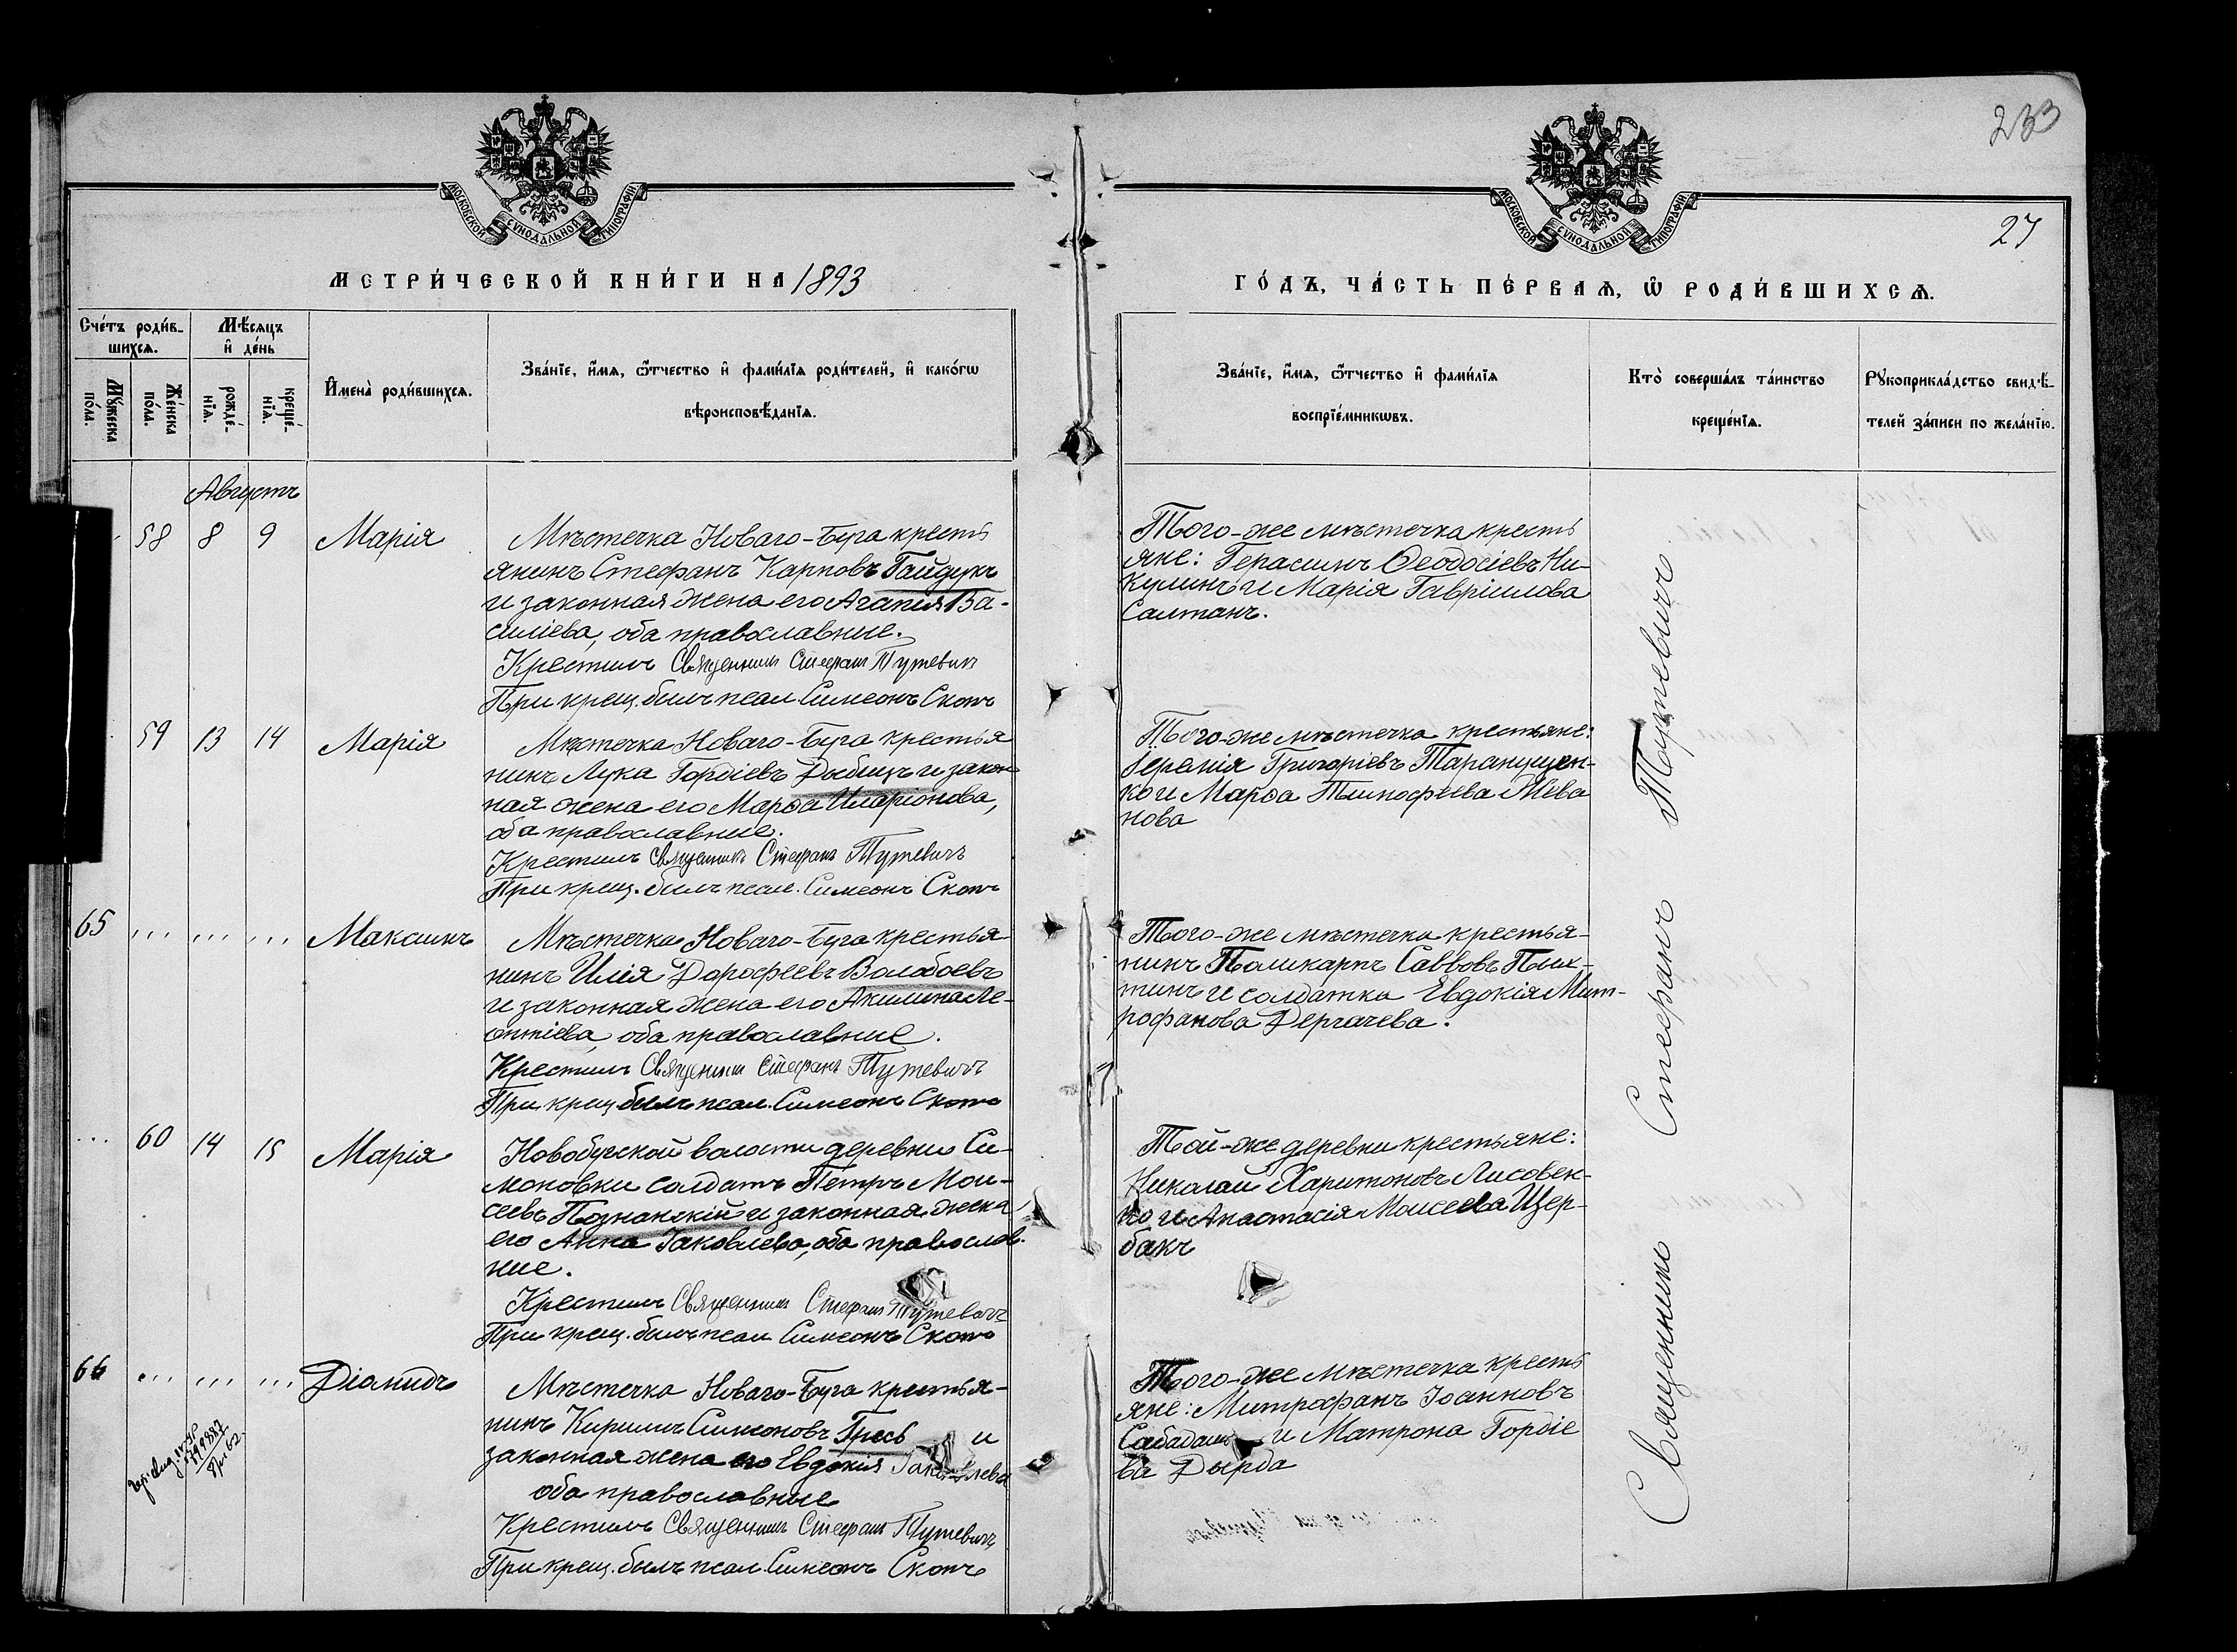 233
27
МОСКОВСКОЙ СѴНОДАЛЬНОЙ ТИПОГРАФІИ
МОСКОВСКОЙ СѴНОДАЛЬНОЙ ТИПОГРАФІИ
МЕТРИ́ЧЕСКОЙ КНИ́ГИ НА 1893
ГО́ДЪ, ЧА́СТЬ ПЕ́РВАѦ, Ѡ҆ РОДИ́ВШИХСѦ.
Сче́тъ роди́в-
шихсѧ.
Мѣ́сѧцъ
и҆ де́нь
Мꙋ́жеска
по́ла.
Же́нска
по́ла.
рожде́-
нїѧ.
креще́-
нїѧ.
И҆мена̀ роди́вшихсѧ.
Зва́нїе, и҆́мѧ, ѻ҆́тчество и҆ фами́лїѧ роди́телей, и҆ како́гѡ
вѣроисповѣ́данїѧ.
Зва́нїе, и҆́мѧ, ѻ҆́тчество и҆ фами́лїѧ
воспрїе́мникѡвъ.
Кто̀ соверша́лъ та́инство
креще́нїѧ.
Рꙋкоприкла́дство свидѣ́-
телей за́писи по жела́нїю.
Августъ
58 8 9 Марія
Мѣстечка Новаго-Буга кресть
янинъ Стефанъ Карповъ Гайдукъ
и законная жена его Агапия Ва-
силіева, оба православные.
Крестилъ Священникъ Стефанъ Тутевичъ
При крещ. былъ псал. Симеонъ Скопъ
Того-же мѣстечка кресть
яне: Герасимъ Ѳеодосіевъ Ни-
кулинъ и Марія Гавріилова
Салтанъ.
59 13 14 Марія
Мѣстечка Новаго-Буга крестья
нинъ Лука Гордіевъ Дыбецъ и закон
ная жена его Марѳа Иларіонова,
оба православные.
Крестилъ Священникъ Стефанъ Тутевичъ
При крещ. былъ псал. Симеонъ Скопъ
Того-же мѣстечка крестьяне:
Іеремія Григоріевъ Таранущен-
ко и Марѳа Тимофеева
нова
65 ... ... ... Максимъ
Мѣстечка Новаго-Буга крестья
нинъ Илія Дорофеевъ Волобоевъ
и законная жена его Акилина Ле-
онтіева, оба православные.
Крестилъ Священникъ Стефанъ Тутевичъ
При крещ. былъ псал. Симеонъ Скопъ
Того-же мѣстечка крестья-
нинъ Поликарпъ Саввовъ Плих-
тинъ и солдатка Евдокія Мит-
рофанова Дергачева.
... 60 14 15 Марія
Новобугской волости деревни Си-
моновки солдатъ Петръ Мои-
сеевъ Познанскій и законная жена
его Анна Іаковлева, оба православ-
ные.
Крестилъ Священникъ Стефанъ Тутевичъ
При крещ. былъ псал. Симеонъ Скопъ
Той-же деревни крестьяне:
Николай Харитоновъ Лисовен-
ко и Анастасія Моисеева Щер-
бакъ
66 ... ... ... Діомидъ
Мѣстечка Новаго-Буга крестья-
нинъ Кириллъ Симоновъ Гресь и
законная жена его Евдокия Іаковлева
оба православные
Крестилъ Священникъ Стефанъ Тутевичъ
При крещ. былъ псал. Симеонъ Скопъ
Того-же Мѣстечка кресть
яне: Митрофанъ Іоанновъ
Сабадашъ и Матрона Гордіе
ва Дырда
Священникъ Стефанъ Тутевичъ